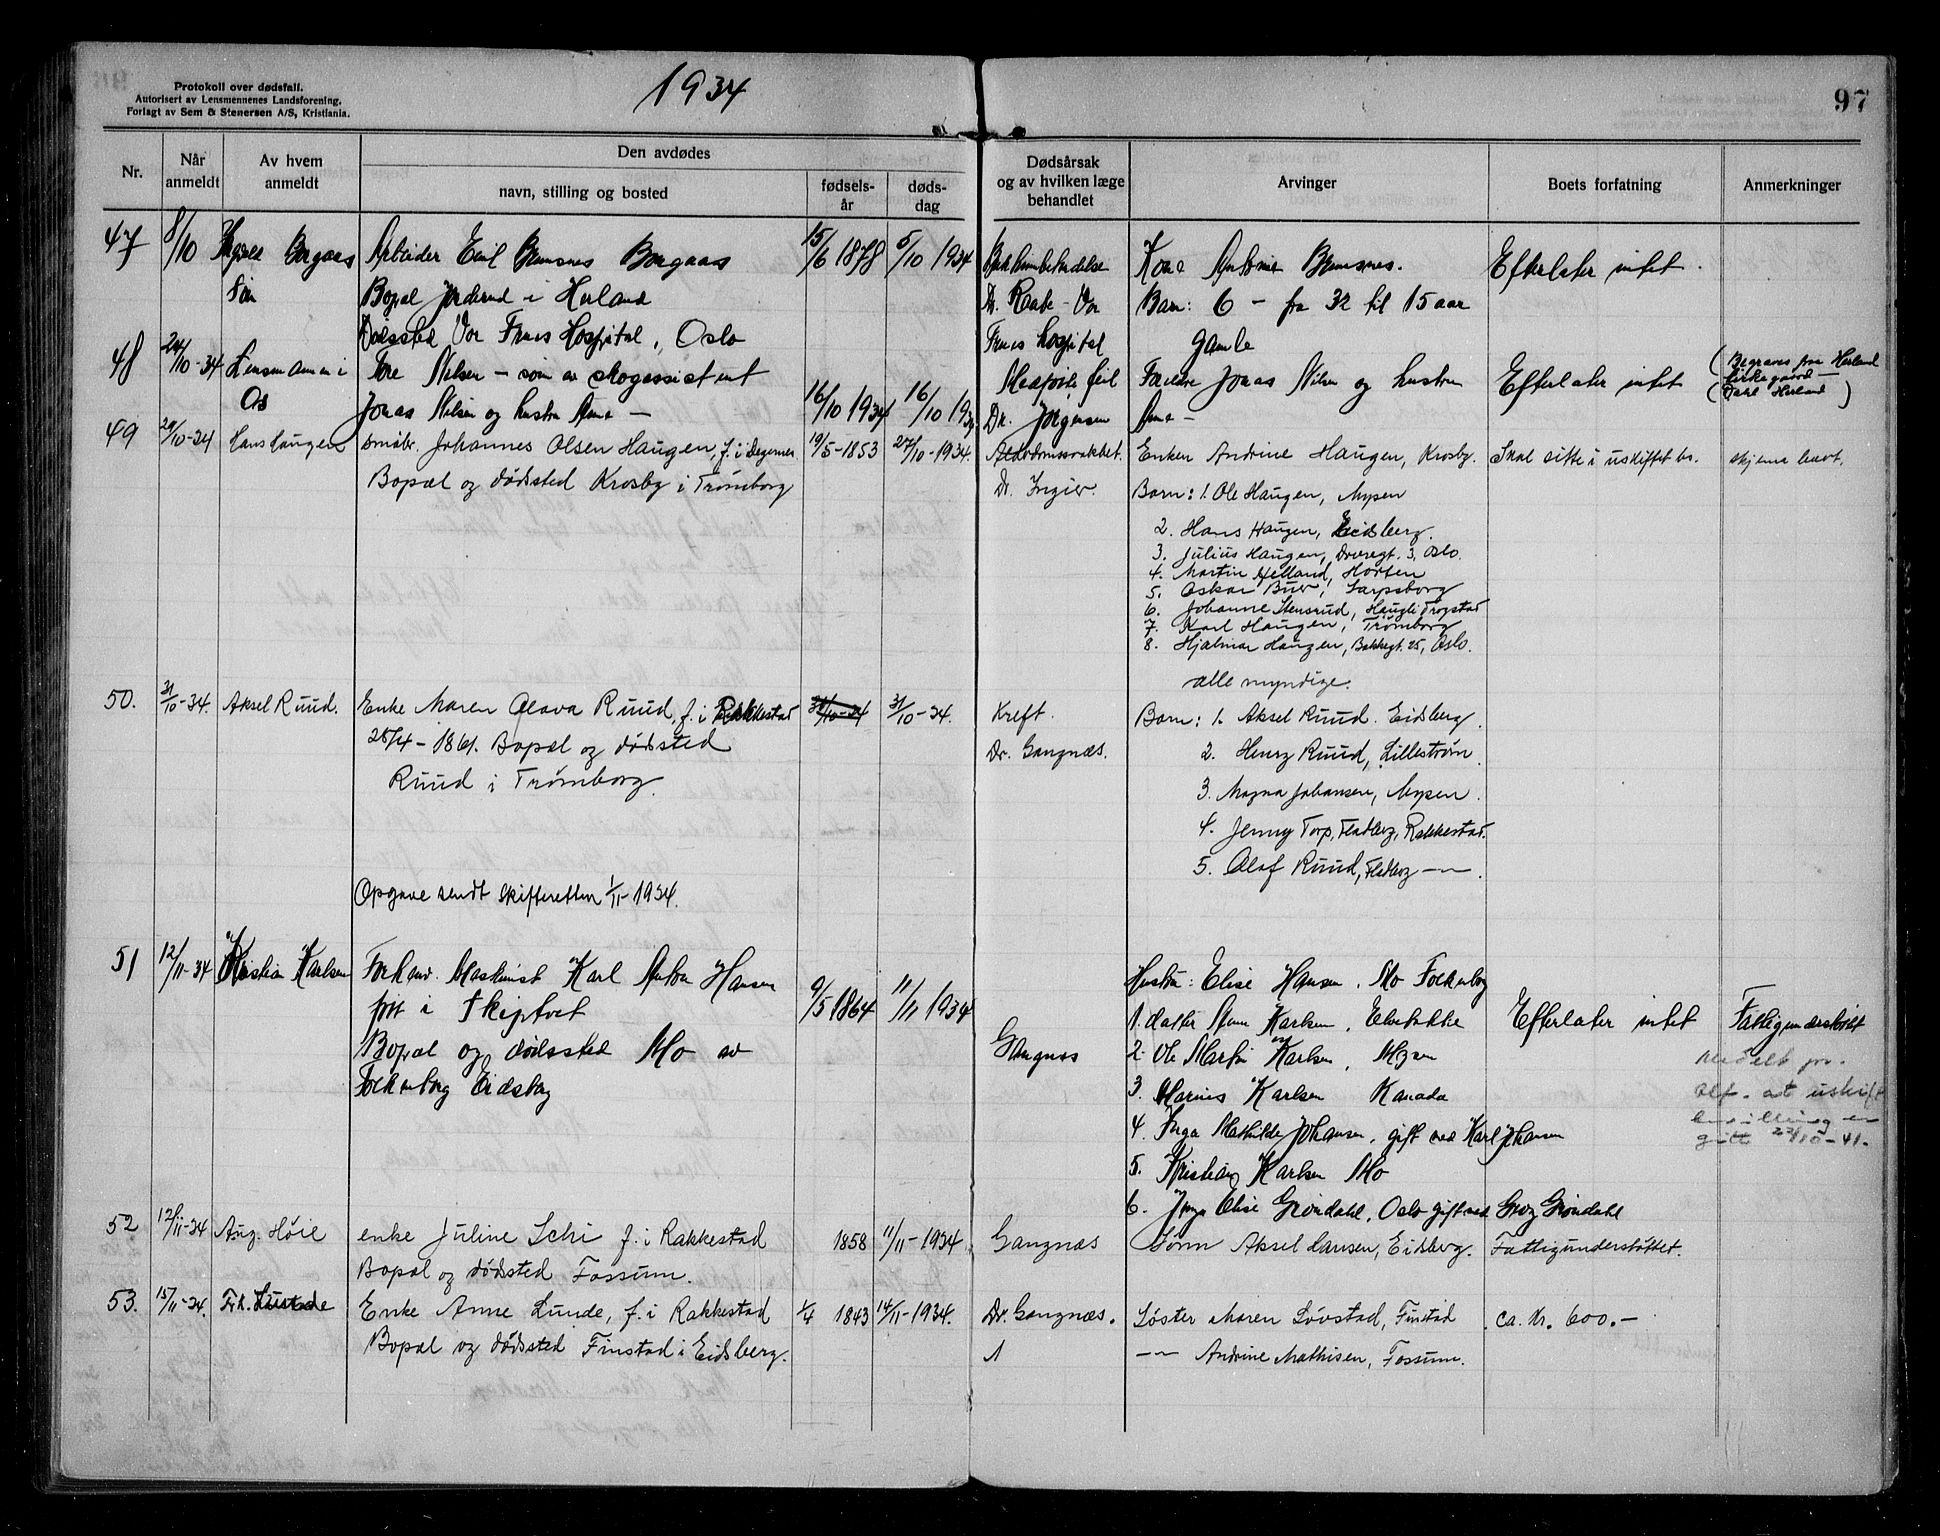 Protokoll over dødsfall.
Autorisert av Lensmennenes Landsforening.
Forlagt av Sem & Stenersen A/S, Kristiania.
1934
97
Nr.
Når anmeldt
Av hvem anmeldt
Den avdødes
navn, stilling og bosted
fødsels-år
døds-dag
Dødsårsak og av hvilken læge behandlet
Arvinger
Boets forfatning
Anmerkninger
47 8/10 Borgaas Arbeider Emil Borgaas 15/6 1878 5/10 1934 Kone Antonie Efterlater intet
Søn Bopæl i Herland Dr. Raabe - Vor Barn: 6 - fra 32 til 15 aar
Dødssted Vor Frues Hospital, Oslo Frues hospital gamle
48 24/10-34 Lensmannen i Tore Nilsen - søn av skogassistent Medfødt feil Foreldre Jonas Nilsen og hustru Efterlater intet (Begraves paa Herland
Os Jonas Nilsen og hustru Anna - 16/10 1934 16/10 1934 Dr. Jørgensen Anna - kirkegaard -
Herland)
49 29/10-34 Hans Haugen småbr. Johannes Olsen Haugen, f. i Degernes 19/5-1853 27/10-1934. Alderdomssvakhet. Enken Andrine Haugen, Krosby. Skal sitte i uskiftet bo. skjema levt.
Bopæl og dødsted Krosby i Trømborg Dr. Ingier. Barn: 1. Ole Haugen, Mysen
2. Hans Haugen, Eidsberg.
3. Julius Haugen, 3, Oslo.
4. Martin Helland, Horten
5. Oskar Buer, Sarpsborg
6. Johanne Stensrud, Haugli Trøgstad
7. Karl Haugen, Trømborg
8. Hjalmar Haugen, Bakkegt. 25, Oslo.
alle myndige.
50. 31/10-34. Aksel Ruud. Enke Maren Olava Ruud, f. i Rakkestad 31/10-34 31/10-34. Kreft. Barn: 1. Aksel Ruud. Eidsberg
28/4-1861. Bopæl og dødsted Dr. Gangnæs. 2. Henry Ruud, Lillestrøm
Ruud i Trømborg. 3. Magna Johansen, Mysen.
4. Jenny Torp, Fladberg, Rakkestad.
5. Olaf Ruud, Fladberg -"-.
Opgave sendt skifteretten 1/11-1934.
51 12/11-34 Kristian Karlsen Forhenv. Maskinist Karl Anton Hansen 9/5 1864 11/11 1934 Hustru: Elise Hansen. Mo Folkenborg
født i Skiptvet 1. datter Karlsen, Efterlater intet Fattigunderstøttet
Bopæl og dødssted Mo av Gangnæs 2. Ole Martin Karlsen, Mysen
Folkenborg Eidsberg 3. Marius Karlsen Kanada
4. Inga Mathilde Johansen, gift med Karl Johansen
5. Kristian Karlsen Mo
6. Elise Grøndahl, Oslo gift med Georg Grøndahl
Meddelt pr.
at uskift
bevilling er
gitt 22/10-41.
52 12/11-34 Aug. Høie enke Juline Schi f. i Rakkestad 1858 11/11-1934 Gangnæs Sønn Aksel Larsen, Eidsberg. Fattigunderstøttet.
Bopæl og dødsted Fossum.
53. 15/11-34. Frk. Enke Anne Lunde, f. i Rakkestad 1/4 1843 14/11-1934. Dr. Gangnæs. Søster Maren Løvstad, Finstad ca. kr. 600.-
Bopæl og dødsted Finstad i Eidsberg. -"- Andrine Mathisen, Fossum.